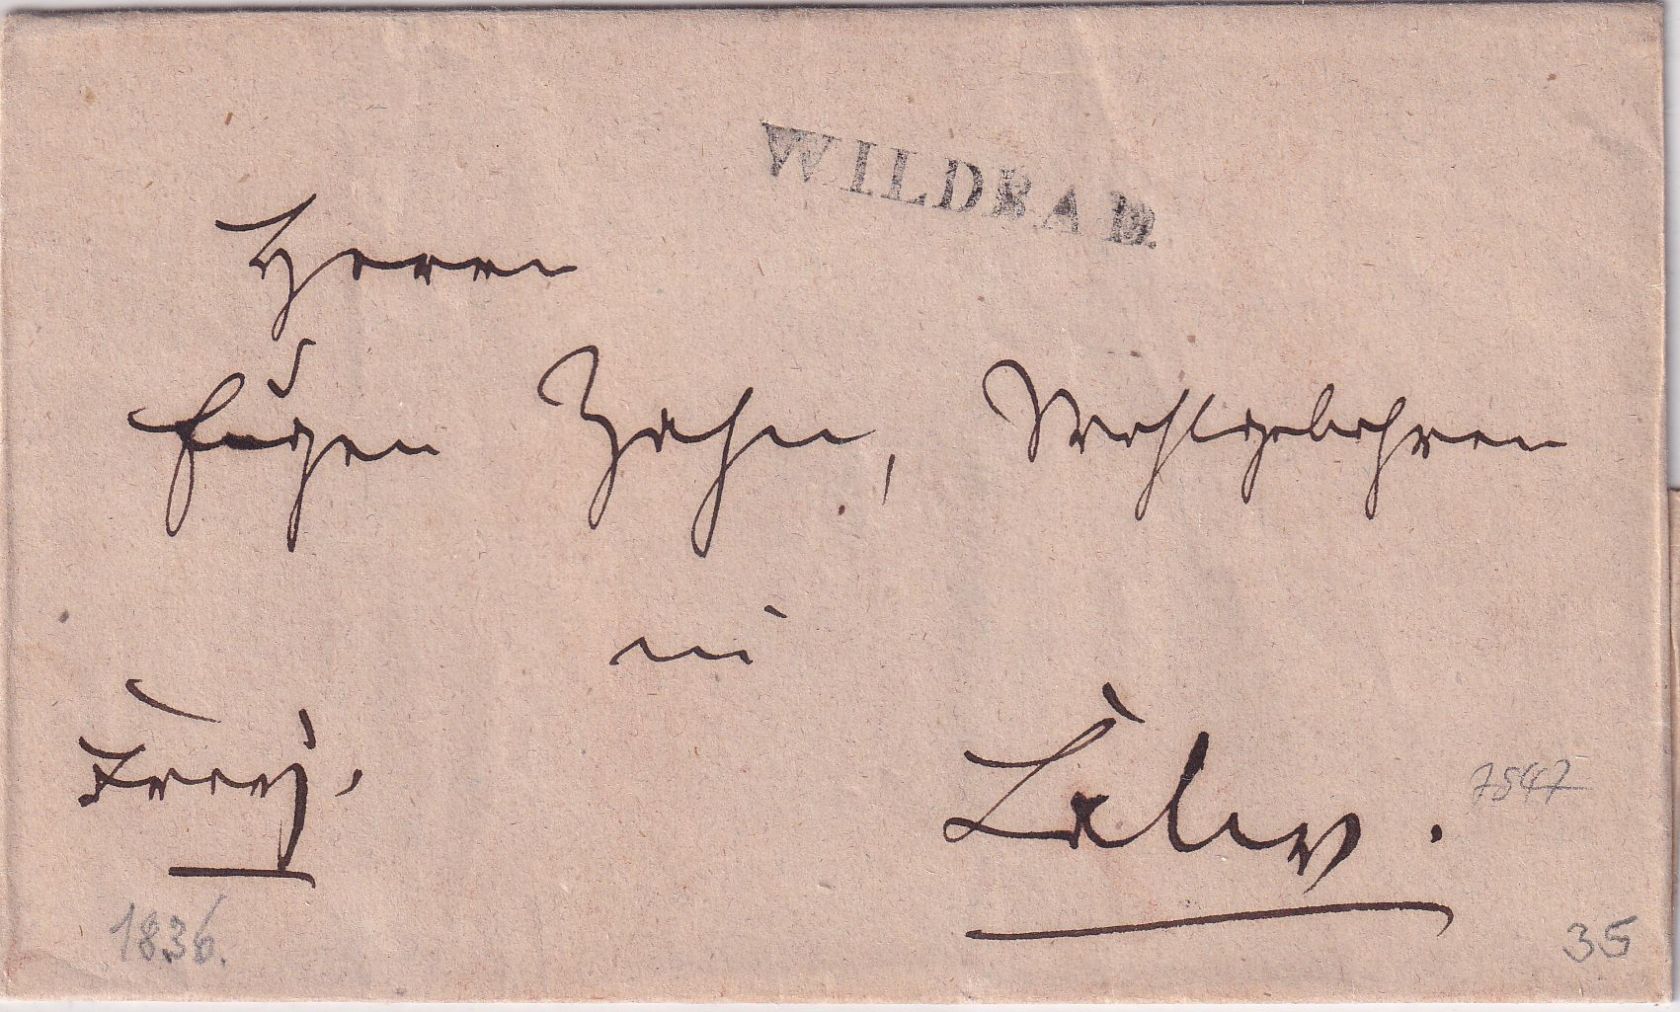 WILDBAD.
Herrn
Eugen Zahn, Wohlgebohren
in
Frey.
Calw.
7547
1836.
35